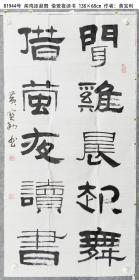 B1944号 闻鸡晨起舞 借萤夜读书 138×68cm 作者：黄宝利
聞雞晨起舞
借螢夜讀書